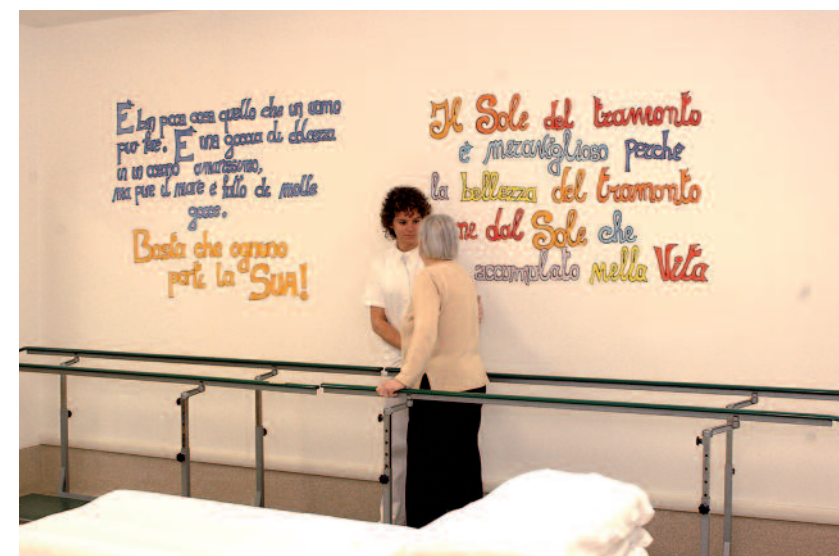 È ben poca cosa quello che un uomo
può fare. È una goccia di dolcezza
in un oceano amarissimo,
ma pure il mare è fatto di molle
gocce.
Basta che ognuno
porti la SUA!
Il Sole del tramonto
è meraviglioso perche
la bellezza del tramonto
ne dal Sole che
accumulato nella Vita